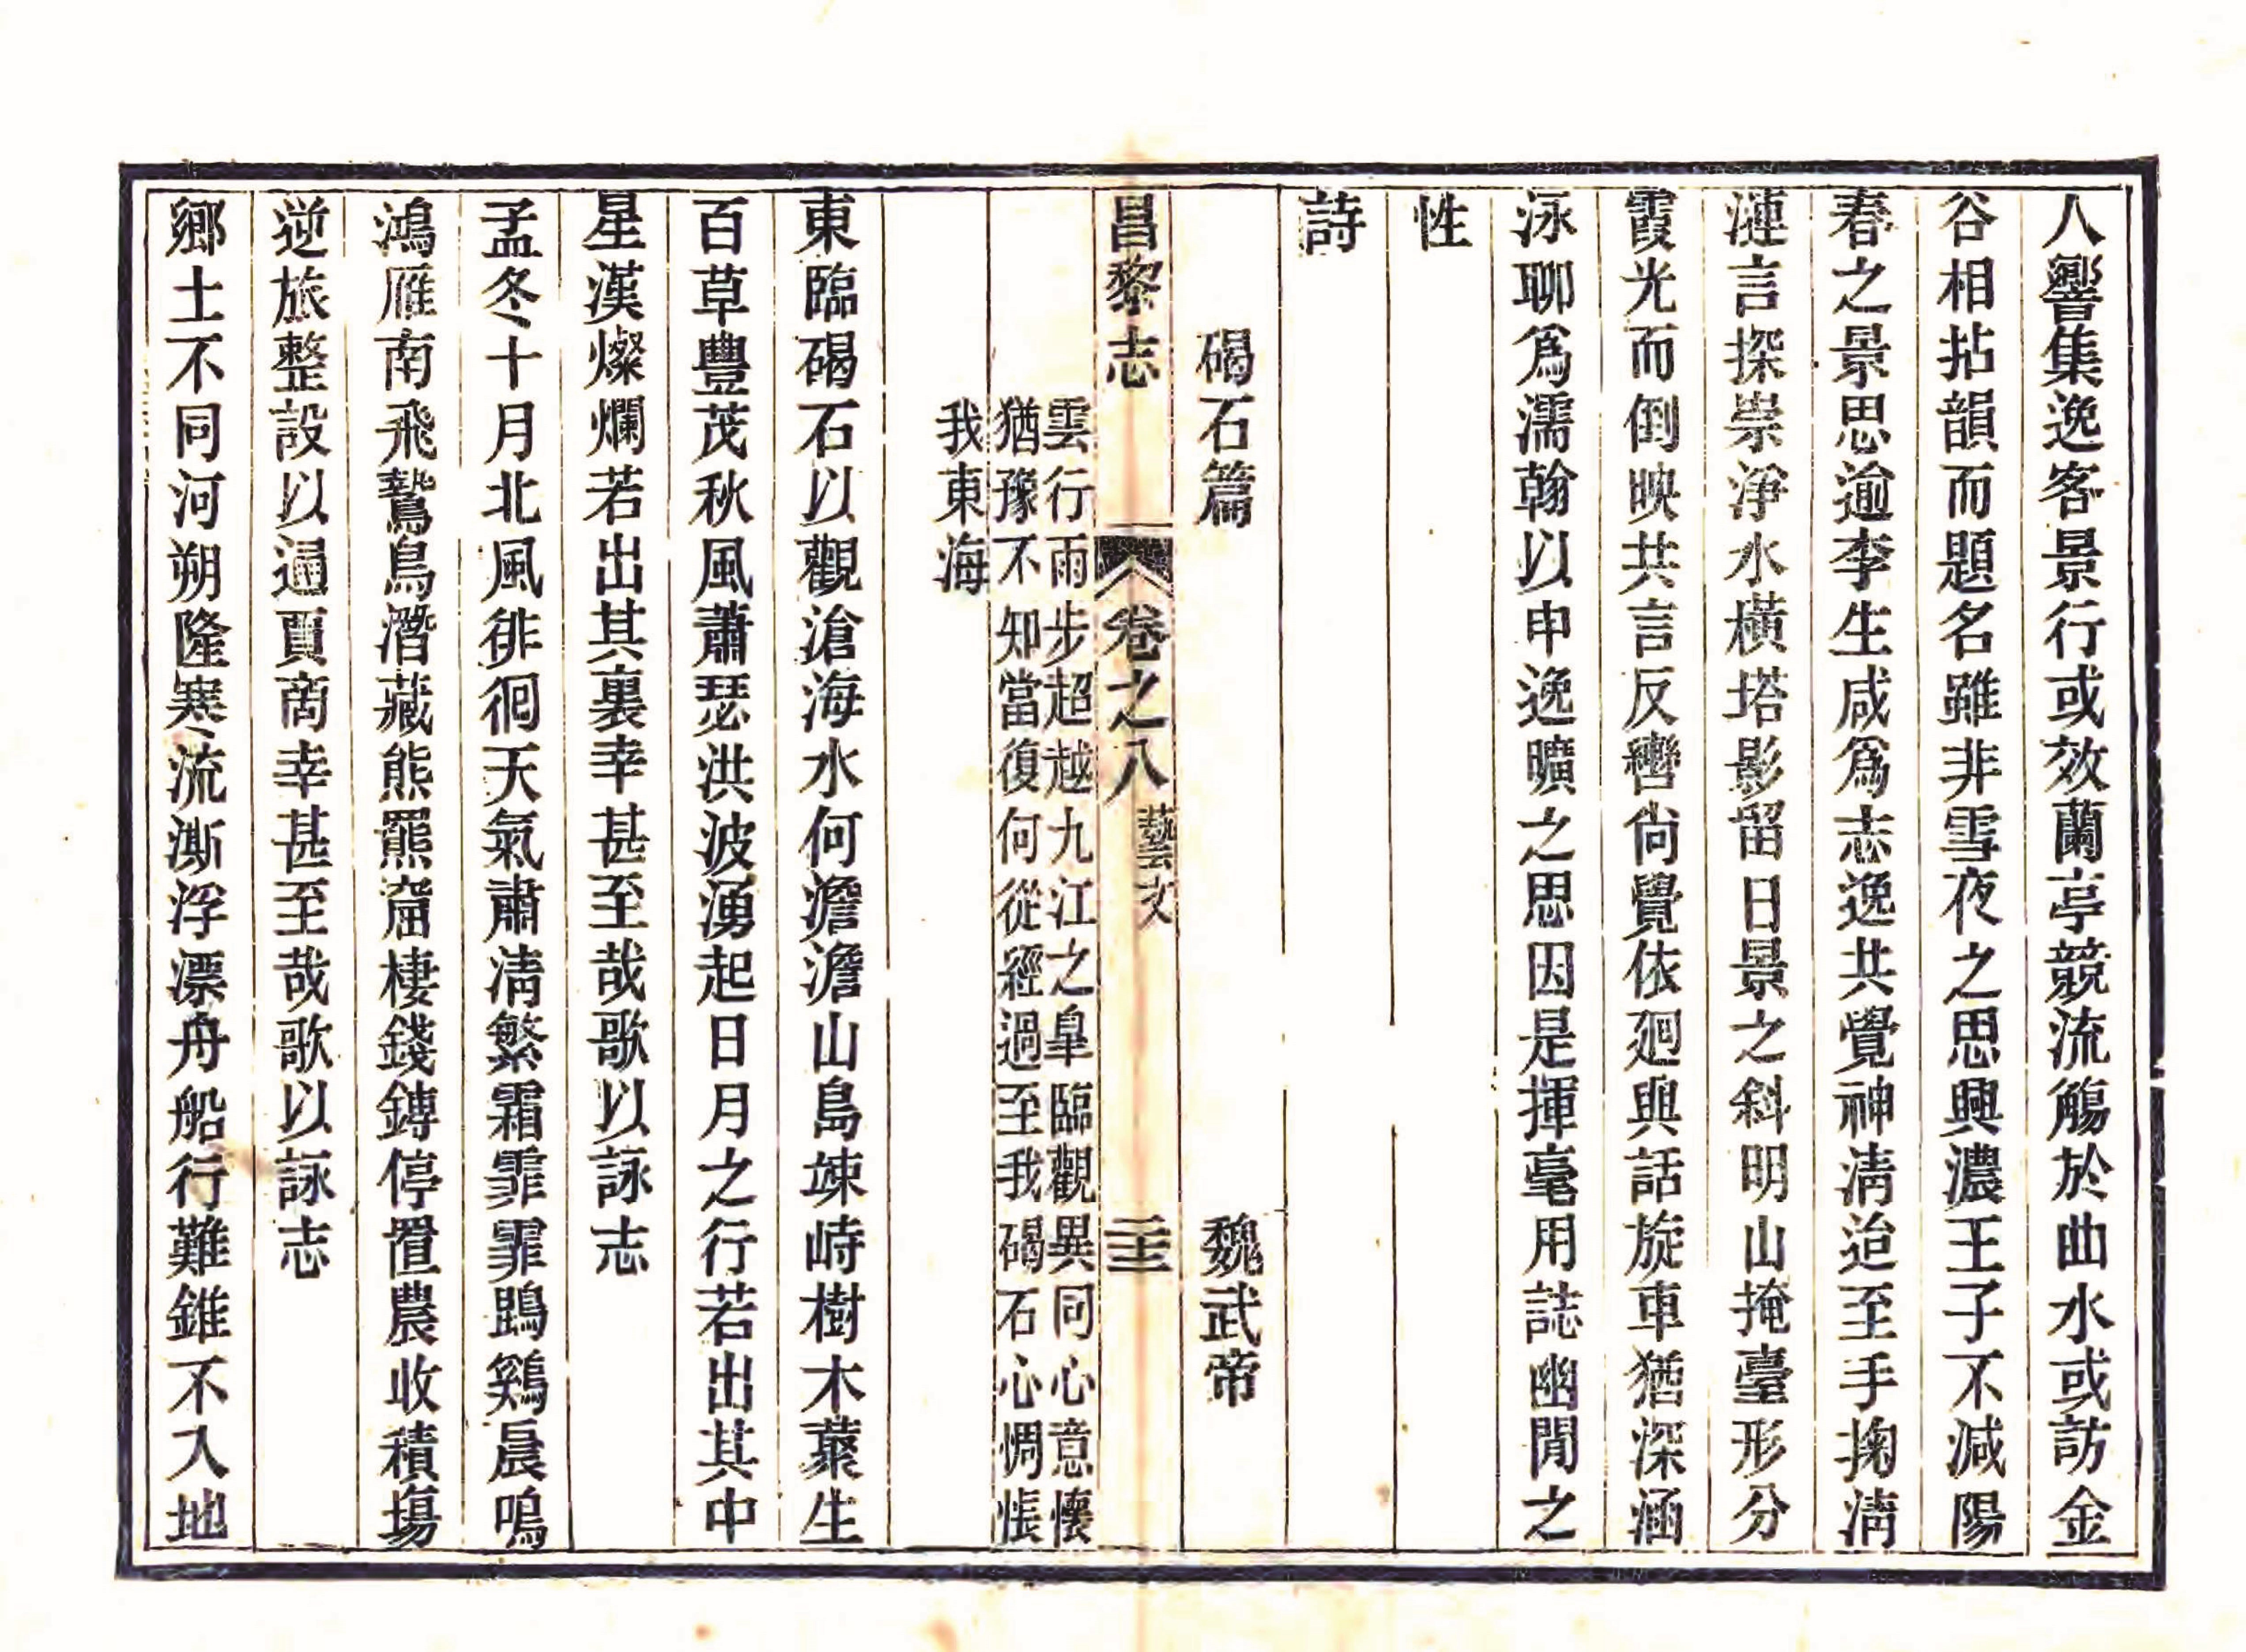 人響集逸客景行或效蘭亭競流觴於曲水或訪金
谷相拈韻而題名雖非雪夜之思興濃王子不減陽
春之景思逾李生咸爲志逸共覺神清迨至手掬清
漣言探崇淨水橫塔影留日景之斜明山掩臺形分
霞光而倒映共言反轡尙覺依廻興話旋車猶深涵
泳聊爲濡翰以申逸曠之思因是揮毫用誌幽閒之
性
詩
碣石篇 魏武帝
昌黎志 卷之八 藝文 二十三
雲行雨步超越九江之臯臨觀異同心意懷
猶豫不知當復何從經過至我碣石心惆悵
我東海
東臨碣石以觀滄海水何澹澹山島竦峙樹木叢生
百草豐茂秋風蕭瑟洪波湧起日月之行若出其中
星漢燦爛若出其裏幸甚至哉歌以詠志
孟冬十月北風徘徊天氣肅清繁霜霏霏鵾鷄晨鳴
鴻雁南飛鷙鳥潛藏熊羆窟棲錢鎛停置農收積塲
逆旅整設以通賈商幸甚至哉歌以詠志
鄉土不同河朔隆寒流澌浮漂舟船行難錐不入地